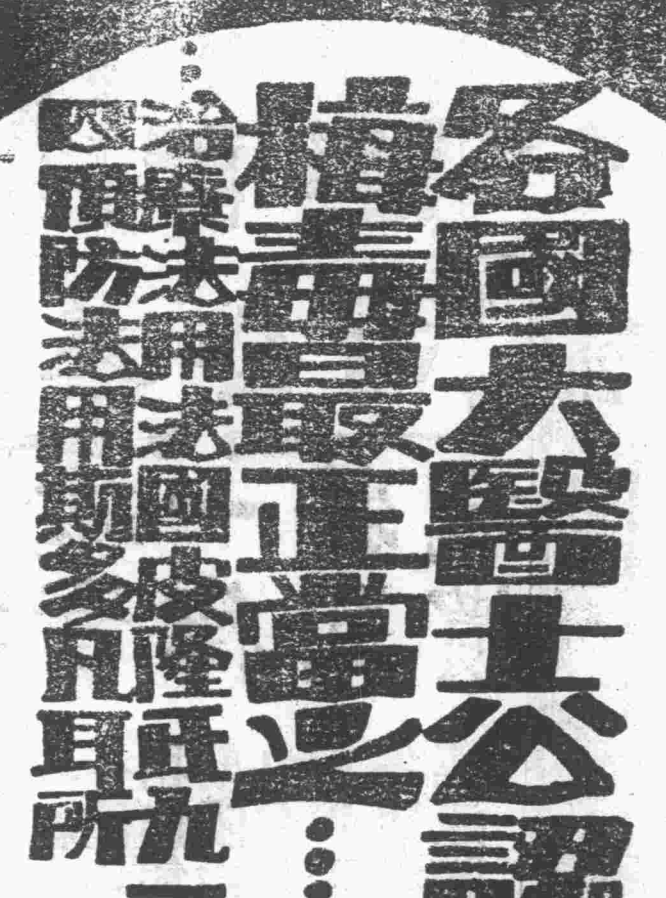 各國大醫士公認
梅毒最正當之…
…治療法用法國皮隆氏九一
預防法用斯多凡耳所